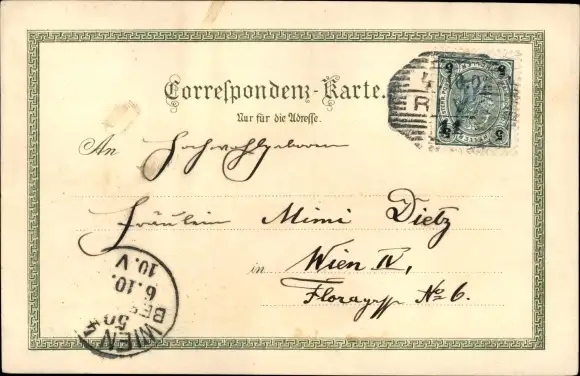 Correspondenz-Karte.
Nur für die Adresse.
An Hochwohlgeboren
Fräulein Mimi Dietz
in Wien IV,
Floragasse No 6.
WIEN 50
BES
6.10.
10.V
5 5
5 5
R